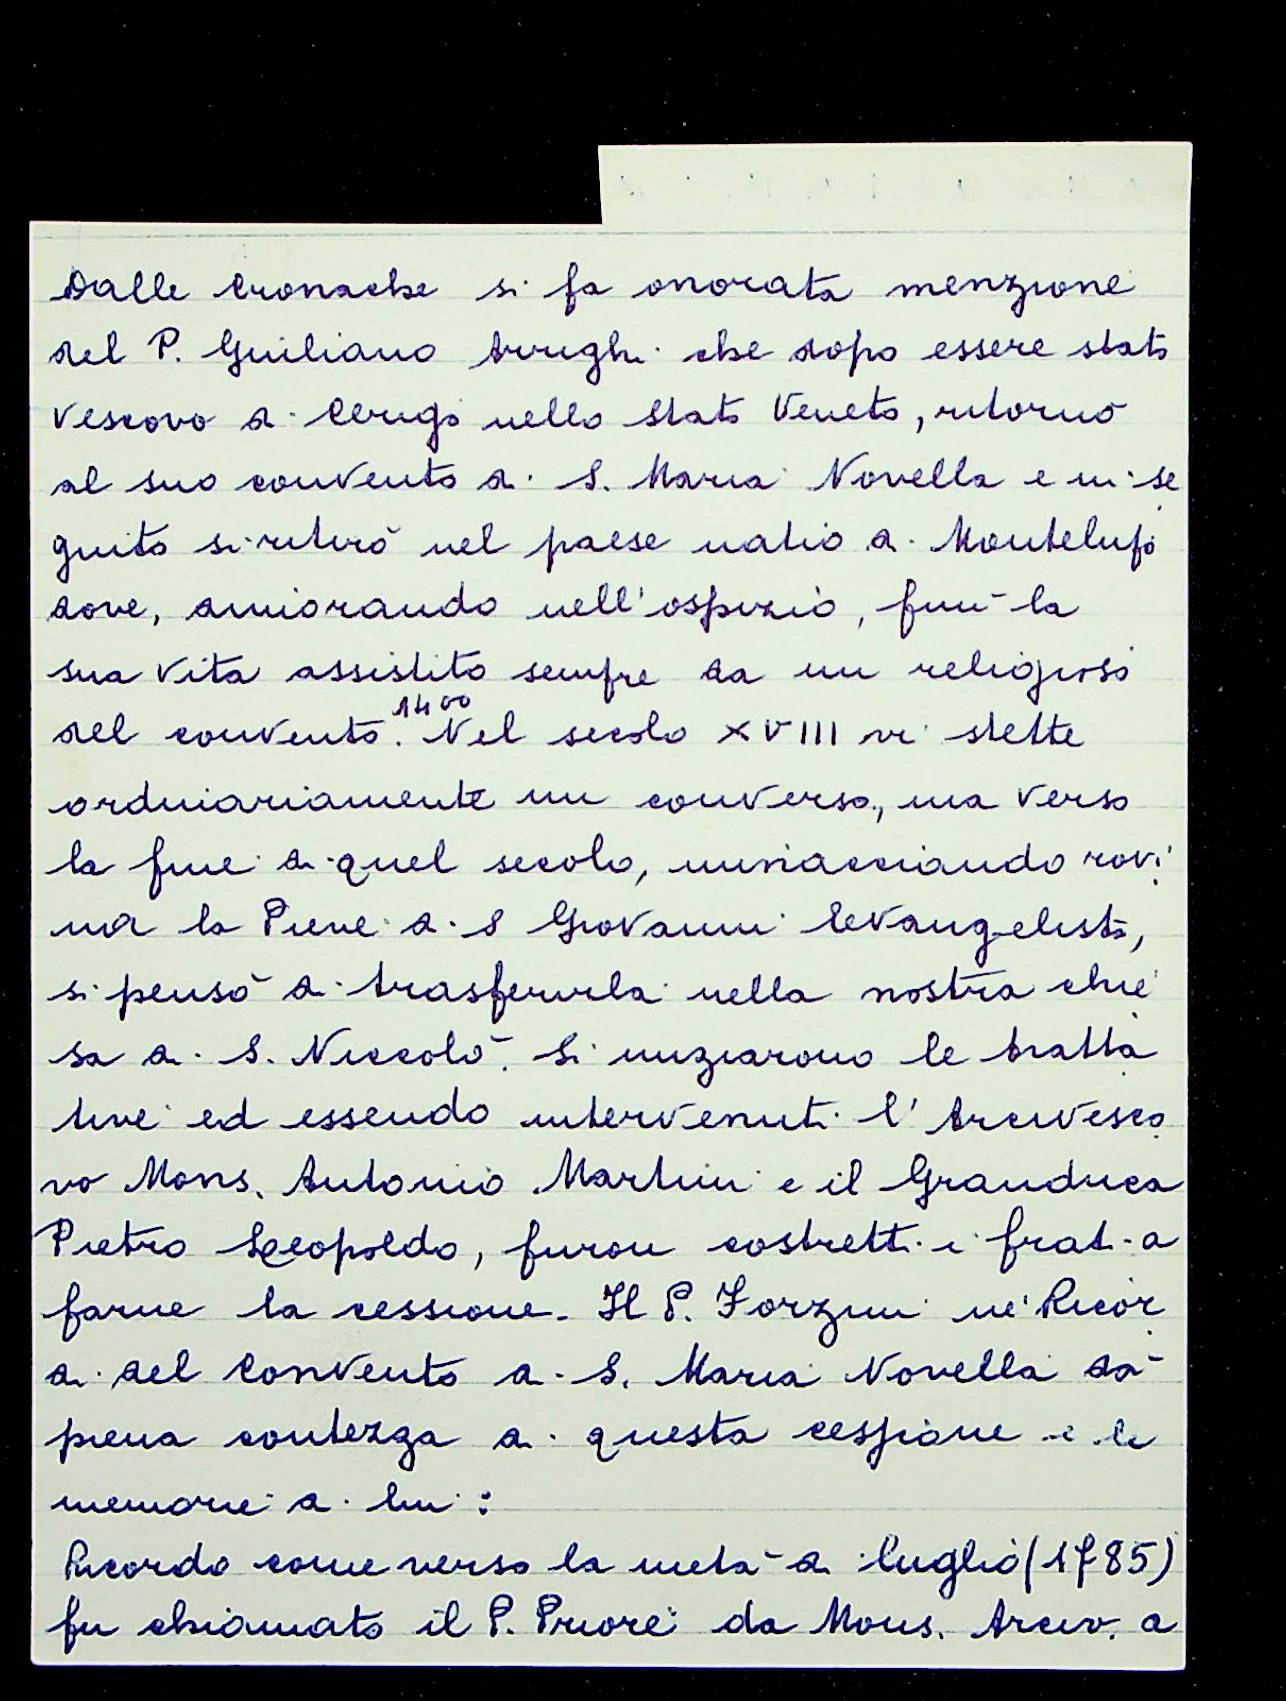 Dalle Cronache si fa onorata menzione
del P. Guiliano Arrighi che dopo essere stato
vescovo di Cerigo nello Stato Veneto, ritornò
al suo convento di S. Maria Novella e in se
guito si ritirò nel paese natio di Montelupo
dove, dimorando nell'ospizio, finì la
sua vita assistito sempre da un religioso
del convento. 1400 Nel secolo XVIII vi stette
ordinariamente un converso, ma verso
la fine di quel secolo, minacciando rovi
na la Pieve di S Giovanni Evangelista,
si pensò di trasferirla nella nostra chie
sa di S. Niccolò. Si iniziarono le tratta
tive ed essendo intervenuti l'Arcivesco
vo Mons. Antonio Martini e il Granduca
Pietro Leopoldo, furon costretti i frati a
farne la cessione. Il P. Forzini ne' Ricor
di del Convento di S. Maria Novella dà
piena contezza di questa cessione e le
memorie di lui:
Ricordo come verso la metà di luglio (1785)
fu chiamato il P. Priore da Mons. Arciv. a